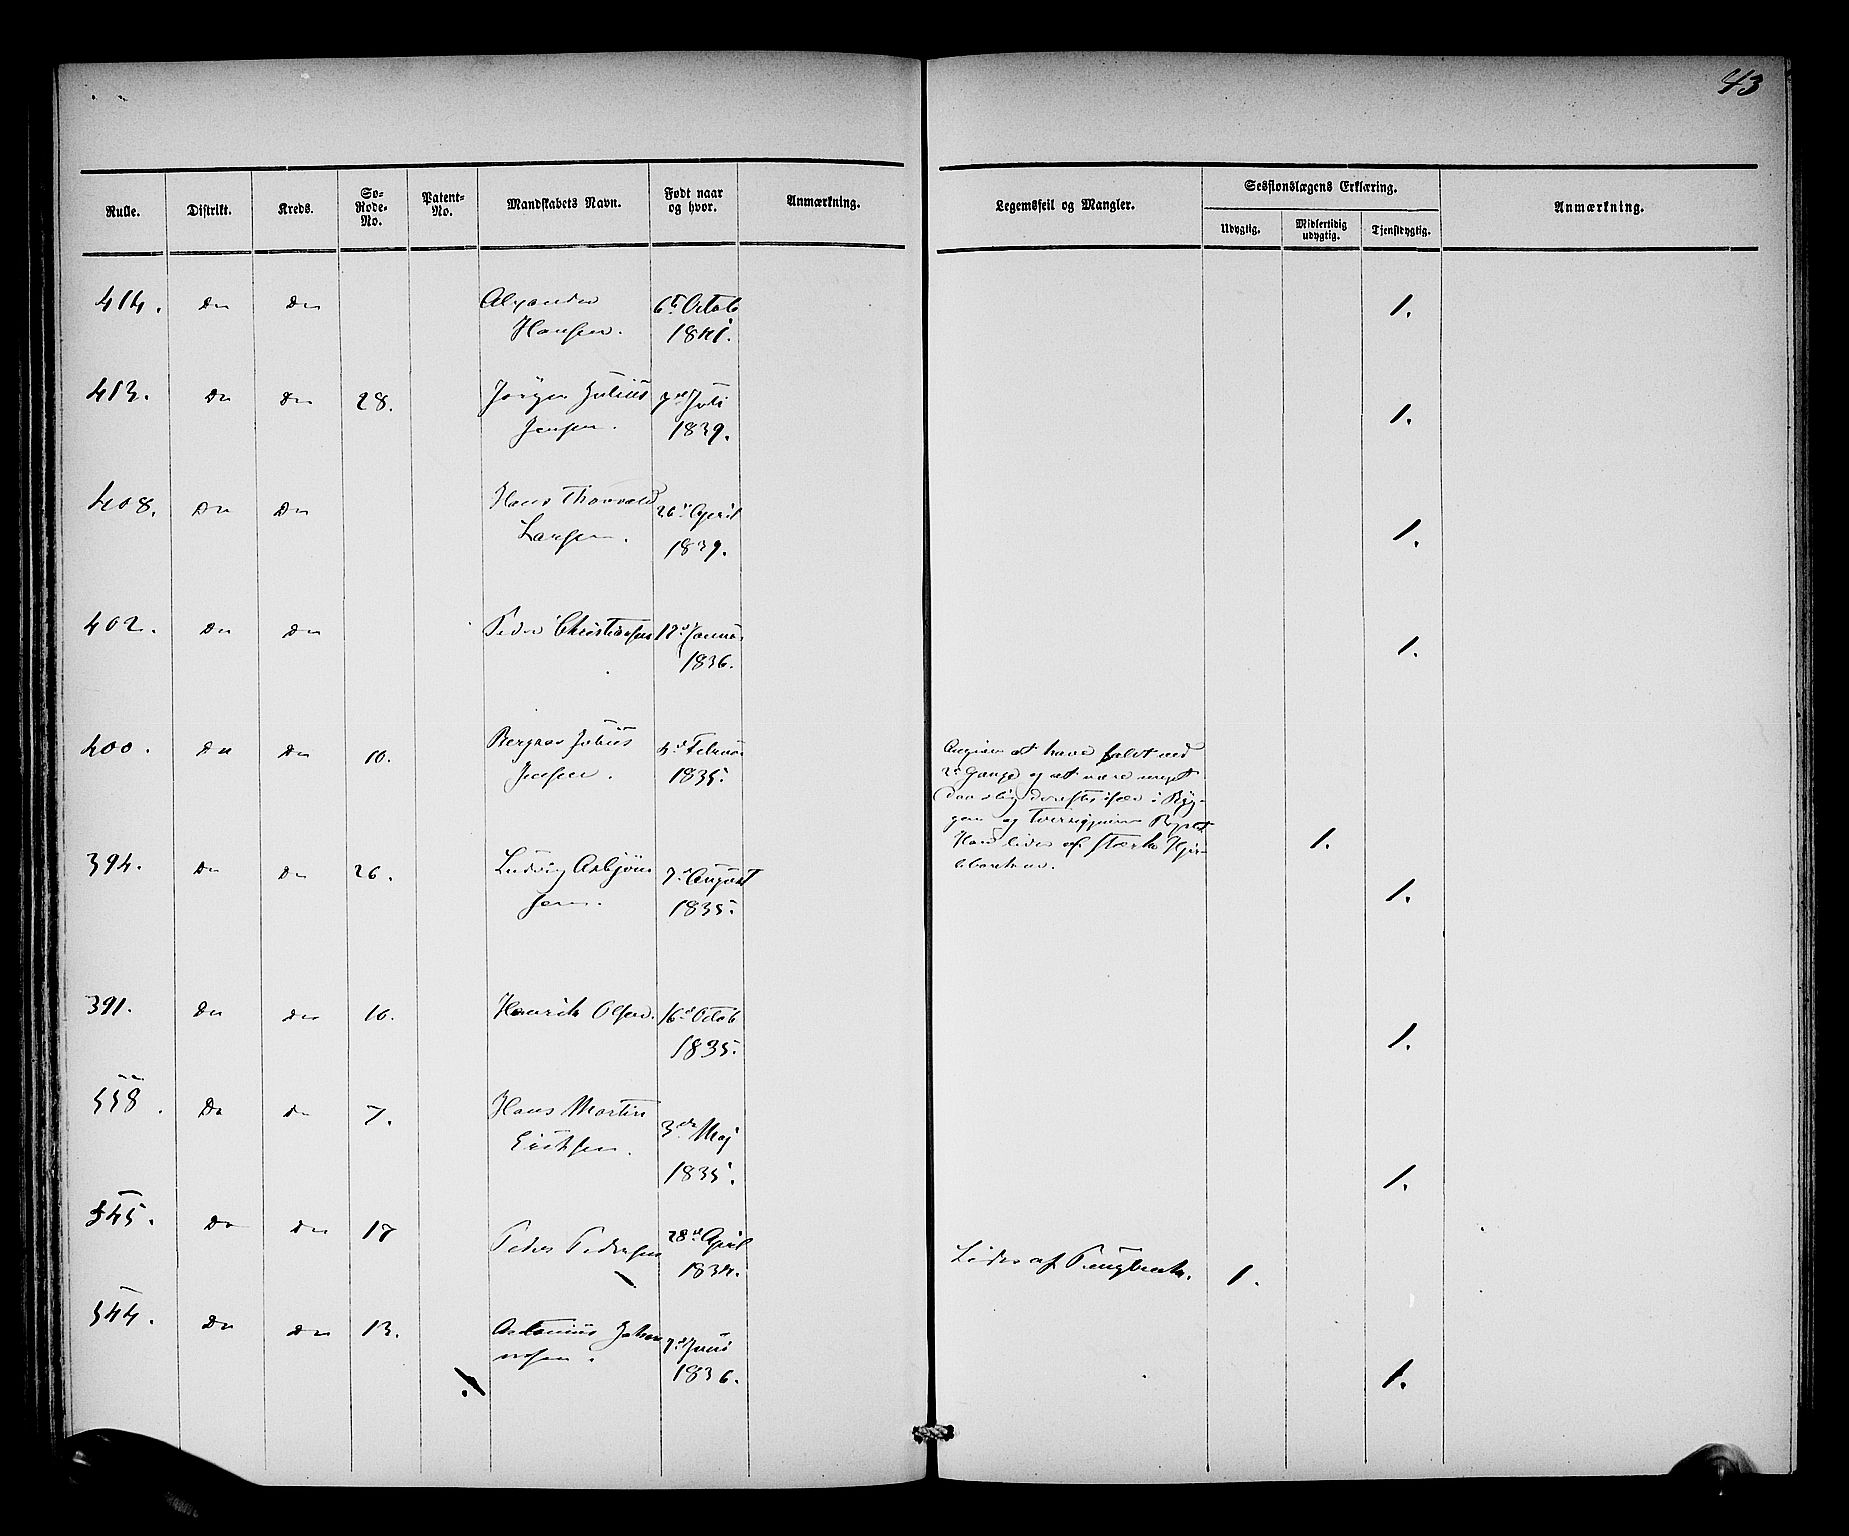 43
Rulle. Distrikt. Kreds. Sø-Rode-No. Patent-No. Mandskabets Navn. Født naar og hvor. Anmærkning. Legemsfeil og Mangler. Sessionslægens Erklæring. Anmærkning.
Udygtig. Midlertidig udygtig. Tjenstdygtig.
414. Do Do Alexander 6te Octob 1.
Hansen. 1841.
413. Do Do 28. Jørgen Julius Juli 1.
Jensen. 1839.
408. Do Do Hans Thorvald 26de April
Larsen. 1839. 1.
402. Do Do Peder Christiansen Januar
1836. 1.
400. Do Do 10. Julius 4de Februar Angiver at have faldt ned
Jensen. 1835. 2de Gange og at være meget
daarlig derefter især i Ryg-
gen og
Han lider af stærk Hjer- 1.
tebanken.
394. Do Do 26. Ludvig Asbjørn 7de August 1.
sen. 1835.
391. Do Do 10. Henrik Olsen. 16de Octob
1835. 1.
558. Do Do 7. Hans Martin 3die Maj
Eriksen. 1835. 1.
545. Do Do 17 Peder Pedersen 28de April Lider af Pungbrok. 1.
1834.
544. Do Do 13. Antonius Johan 7de Juni
nesen. 1836. 1.